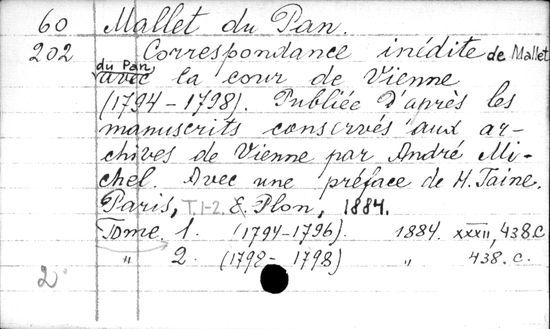 60 Mallet du Pan.
202 Correspondance inédite de Mallet
du Pan
avec la cour de Vienne
(1794-1798). Publiée d'après les
manuscrits conservés aux ar-
chives de Vienne par André Mi-
chel. Avec une préface de H. Taine.
Paris, T.1-2. E. Plon, 1884.
Tome 1. (1794-1796). 1884. XXXII, 438.c
" 2. (1798- 1798) " 438. c.
2